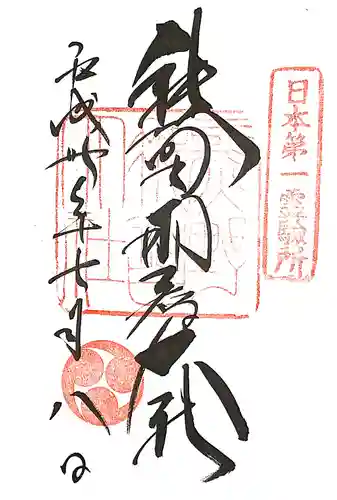 日本第一霊験所
熊野那智大社
平成廿年七月八日